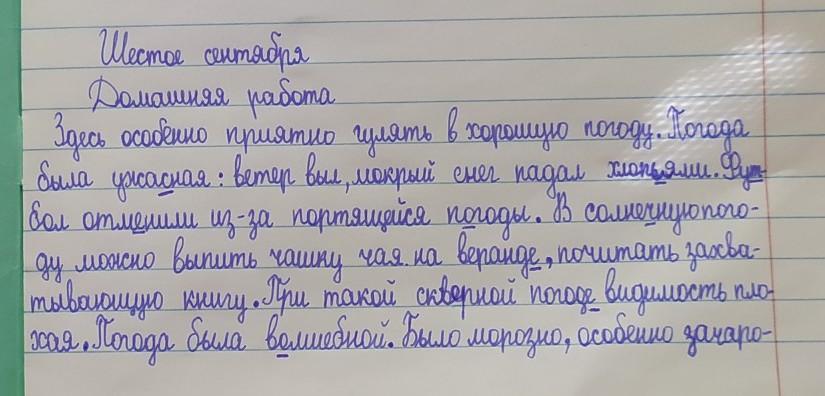 Шестое сентября
Домашняя работа
Здесь особенно приятно гулять в хорошую погоду. Погода
была ужасная: ветер выл, мокрый снег падал хлопьями. Фут-
бол отменили из-за портящейся погоды. В солнечную пого-
ду можно выпить чашку чая на веранде, почитать захва-
тывающую книгу. При такой скверной погоде видимость пло-
хая. Погода была волшебной. Было морозно, особенно зачаро-